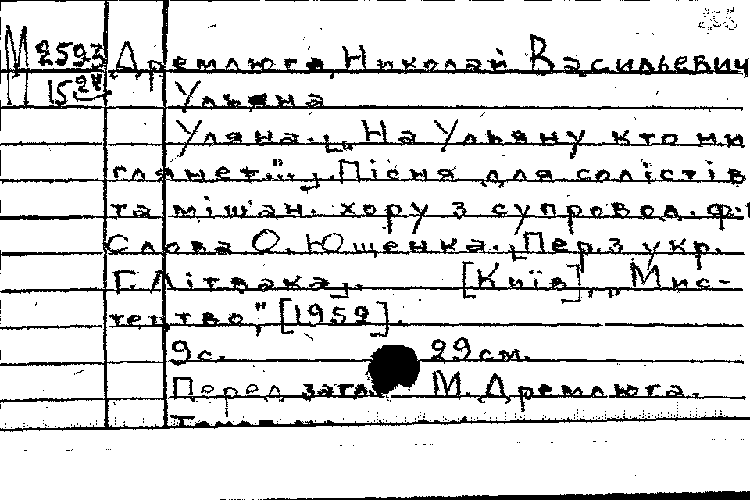 М 2593 Дремлюга, Николай Васильевич
15 27 Ульяна
Уляна. ["На Ульяну кто ни
глянет..."]. Пісня для солістів
та мішан. хору з супровод. ф.-
Слова О. Ющенка. [Пер. з укр.
Г. Літвака]. [Київ], "Мис-
тецтво", [1959].
9 с. 29 см.
Перед загл. М. Дремлюга.